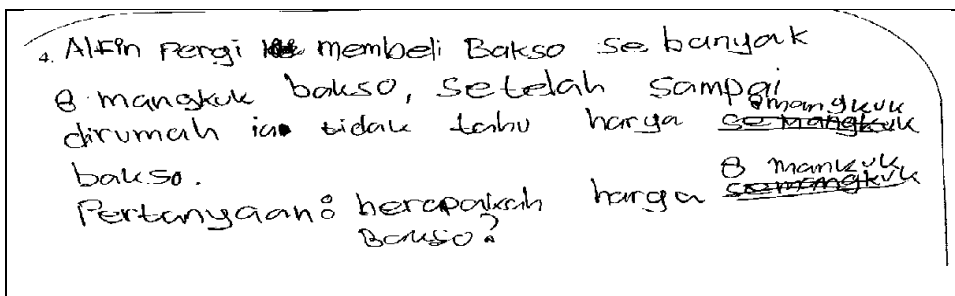 4. Alfin Pergi membeli Bakso se banyak
8 mangkuk bakso, setelah sampai
dirumah ia tidak tahu harga 8 mangkuk
bakso.
Pertanyaan: berapakah harga 8 mankuk
Bakso?